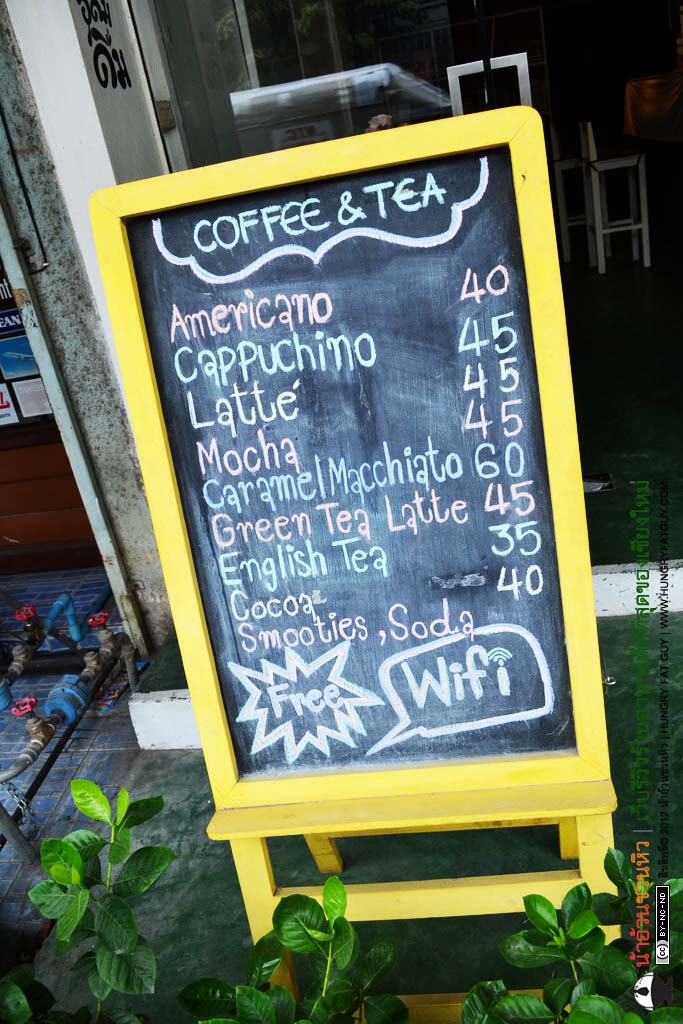 COFFEE & TEA
Americano 40
Cappuchino 45
Latté 45
Mocha 45
Caramel Macchiato 60
Green Tea Latte 45
English Tea 35
Cocoa 40
Smooties, Soda
Free Wifi
น้าอ้วนชวนหิว |
HUNGRY FAT GUY | WWW.HUNGRYFATGUY.COM
BY-NC-ND